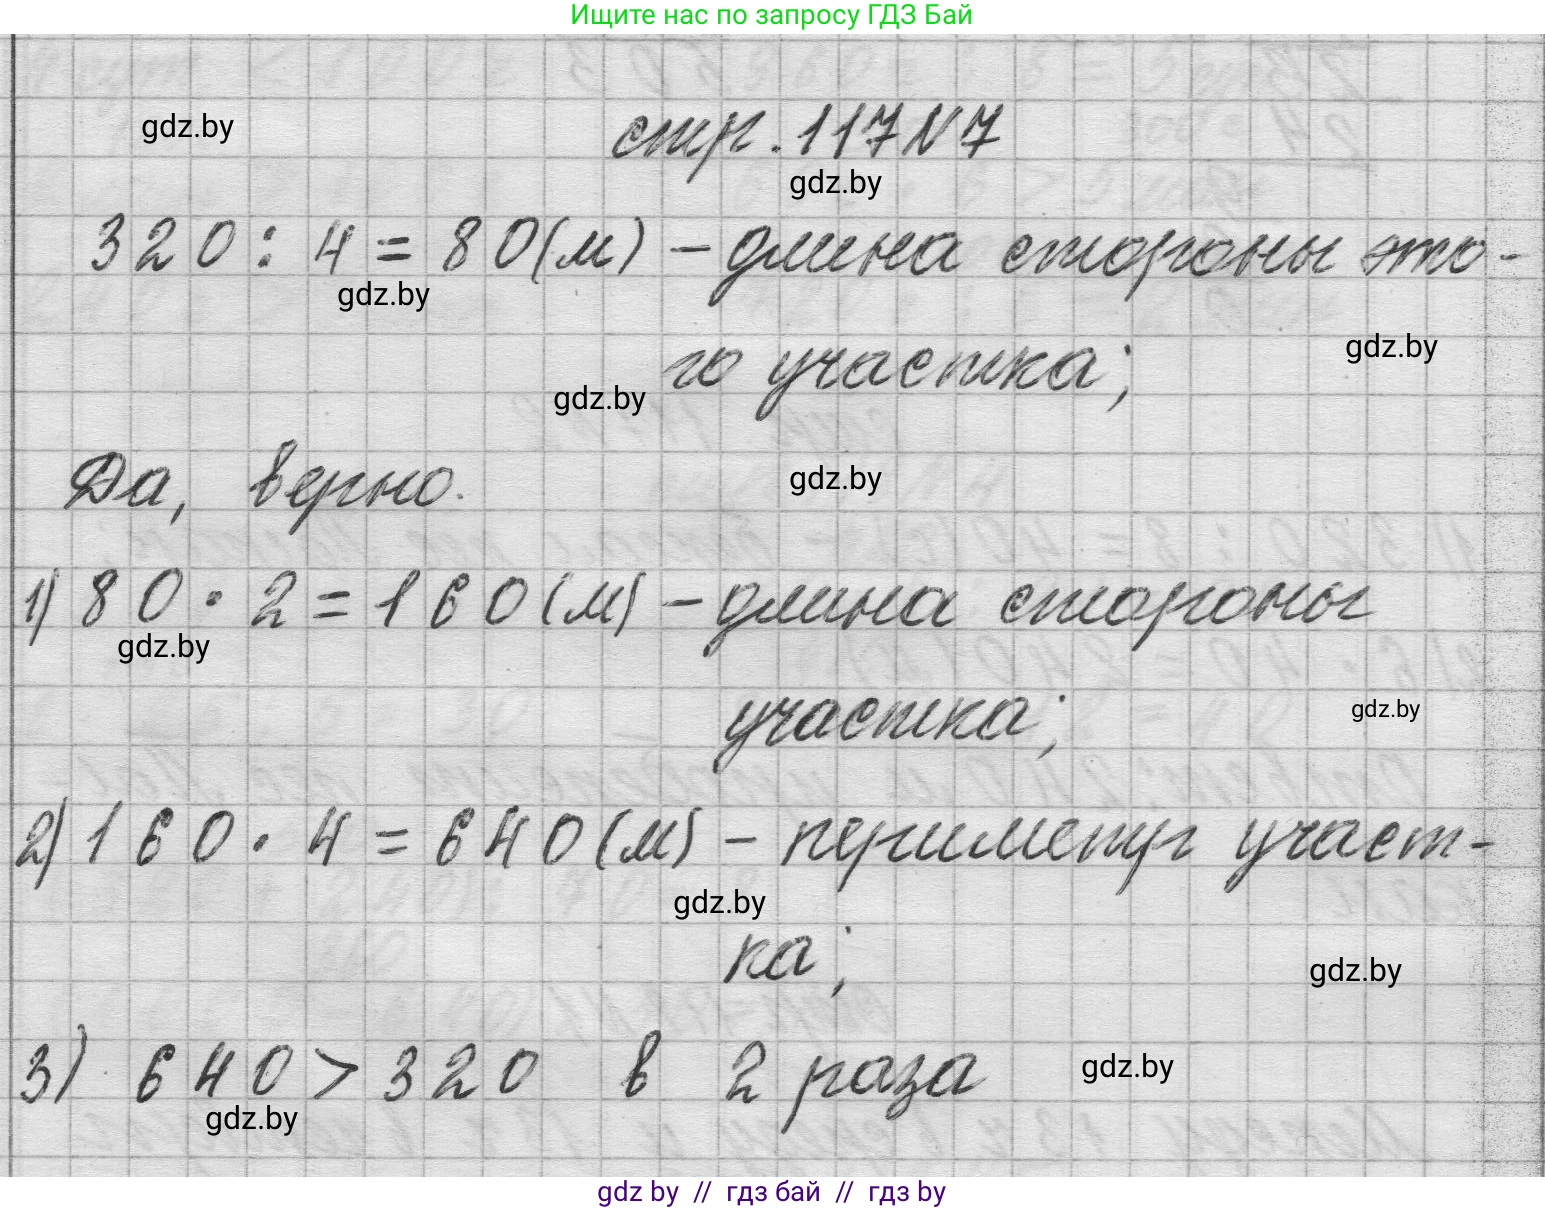 Ищите нас по запросу ГДЗ Бай
gdz.by
стр. 117 N 7
gdz.by
320 : 4 = 80 (м) – длина стороны это-
gdz.by
го участка;
gdz.by
gdz.by
Да, верно.
gdz.by
1) 80 · 2 = 160 (м) – длина стороны
gdz.by
участка;
gdz.by
2) 160 · 4 = 640 (м) – периметр участ-
gdz.by
ка;
gdz.by
3) 640 > 320 в 2 раза
gdz.by
gdz.by
gdz by // гдз бай // гдз by